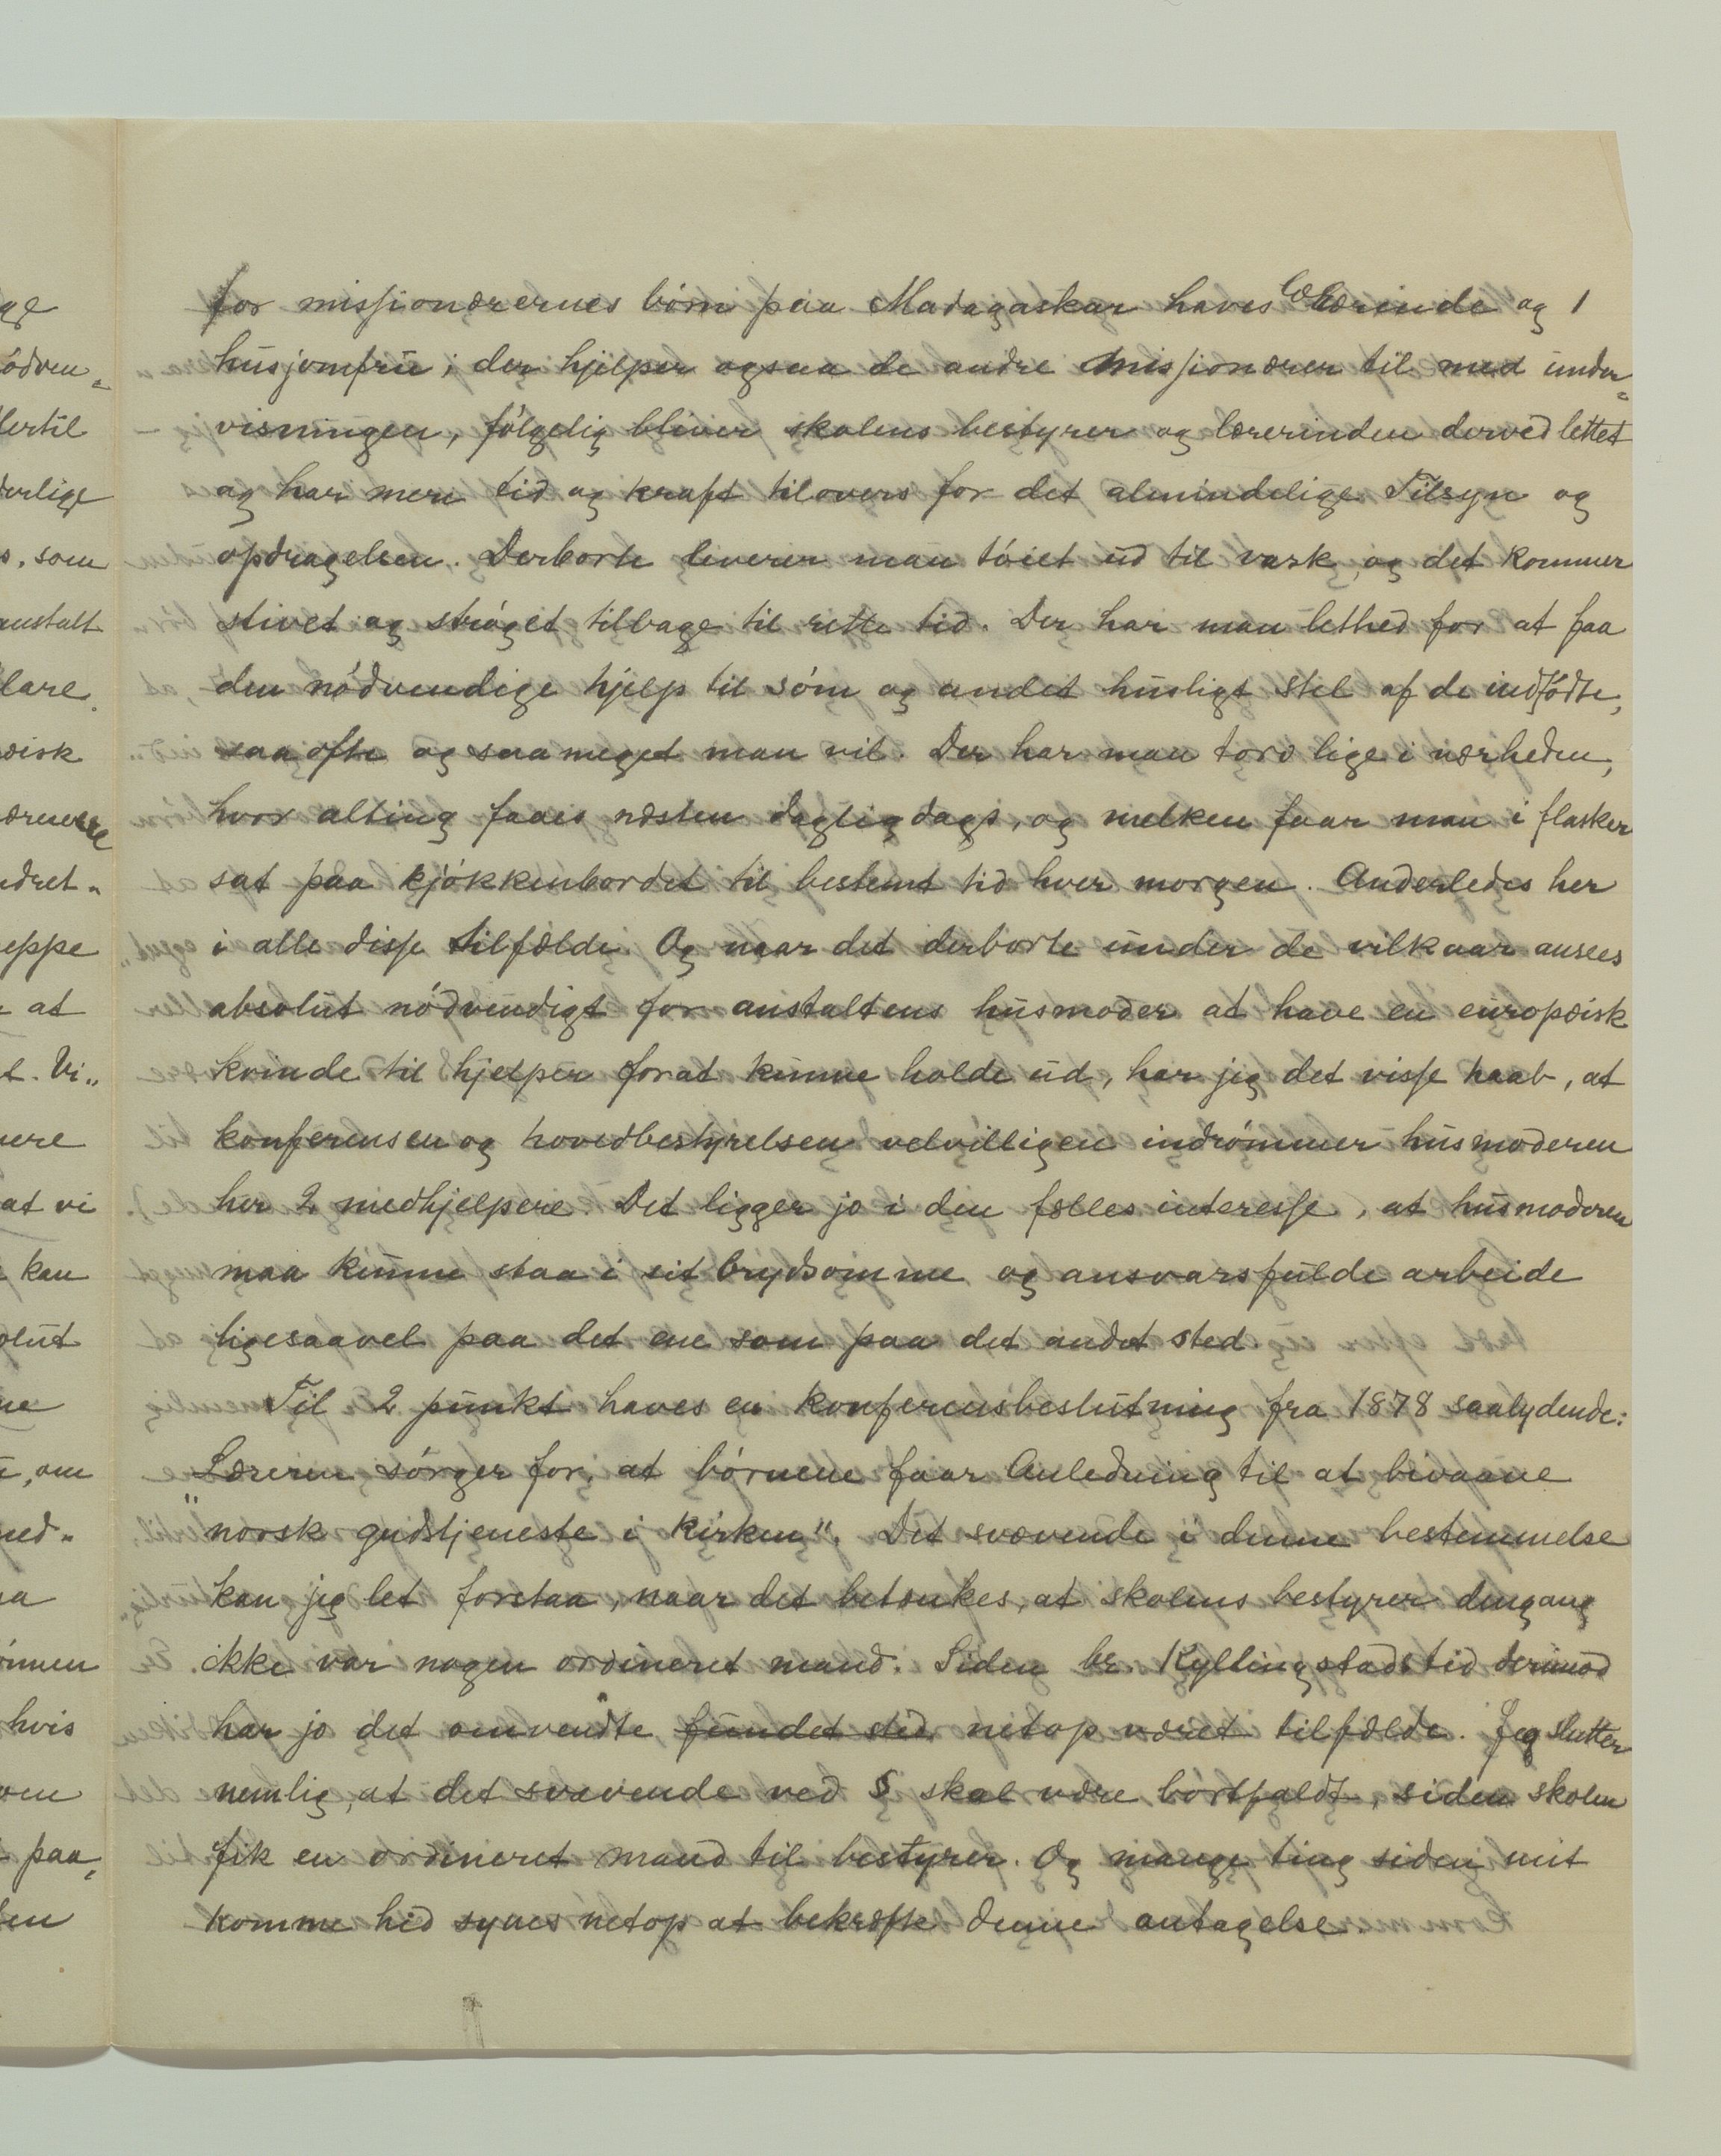 for missionærernes börn paa Madagaskar haves Lærerinde og 1
husjomfru; der hjelper ogsaa de andre missionærer til med under=
visningen, fölgelig bliver skolens bestyrer og lærerinden derved lettet
og har mere tid og kraft tilovers for det almindelige Tilsyn og
opdragelsen. Derborte leverer man töiet ud til vask, og det kommer
stivet og ströget tilbage til rette tid. Der har man lethed for at faa
den nödvendige hjelp til söm og andet husligt stel af de indfödte,
saa ofte og saa meget man vil. Der har man torv lige i nærheden,
hvor alting faaes næsten daglig dags, og melken faar man i flasker
sat paa kjökkenbordet til bestemt tid hver morgen. Anderledes her
i alle disse tilfælde. Og naar det derborte under de vilkaar ansees
absolut nödvendigt for anstaltens husmoder at have en europæisk
kvinde til hjelper forat kunne holde ud, har jeg det visse haab, at
konferensen og hovedbestyrelsen velvilligen indrömmer husmoderen
her 2 medhjelpere. Det ligger jo i den fælles interesse, at husmoderen
maa kunne staa i sit brydsomme og ansvarsfulde arbeide
ligesaavel paa det ene som paa det andet sted.
Til 2 punkt haves en konferensbeslutning fra 1878 saalydende:
"Læreren sörger for, at börnene faar Anledning til at bivaane
norsk gudstjeneste i kirken". Det svævende i denne bestemmelse
kan jeg let forstaa, naar det betænkes, at skolens bestyrer dengang
ikke var nogen ordineret mand. Siden br. Kyllingstads tid derimod
har jo det omvendte fundet sted netop været tilfælde. Jeg slutter
nemlig, at det svævende ved § skal være bortfaldt, siden skolen
fik en ordineret mand til bestyrer. Og mange ting siden mit
komme hid synes netop at bekræfte denne antagelse.
ödven=
dertil
derlige
s, som
anstalt
eppe
at
l. Vi=
at vi
kan
olut
om
hvis
paa=